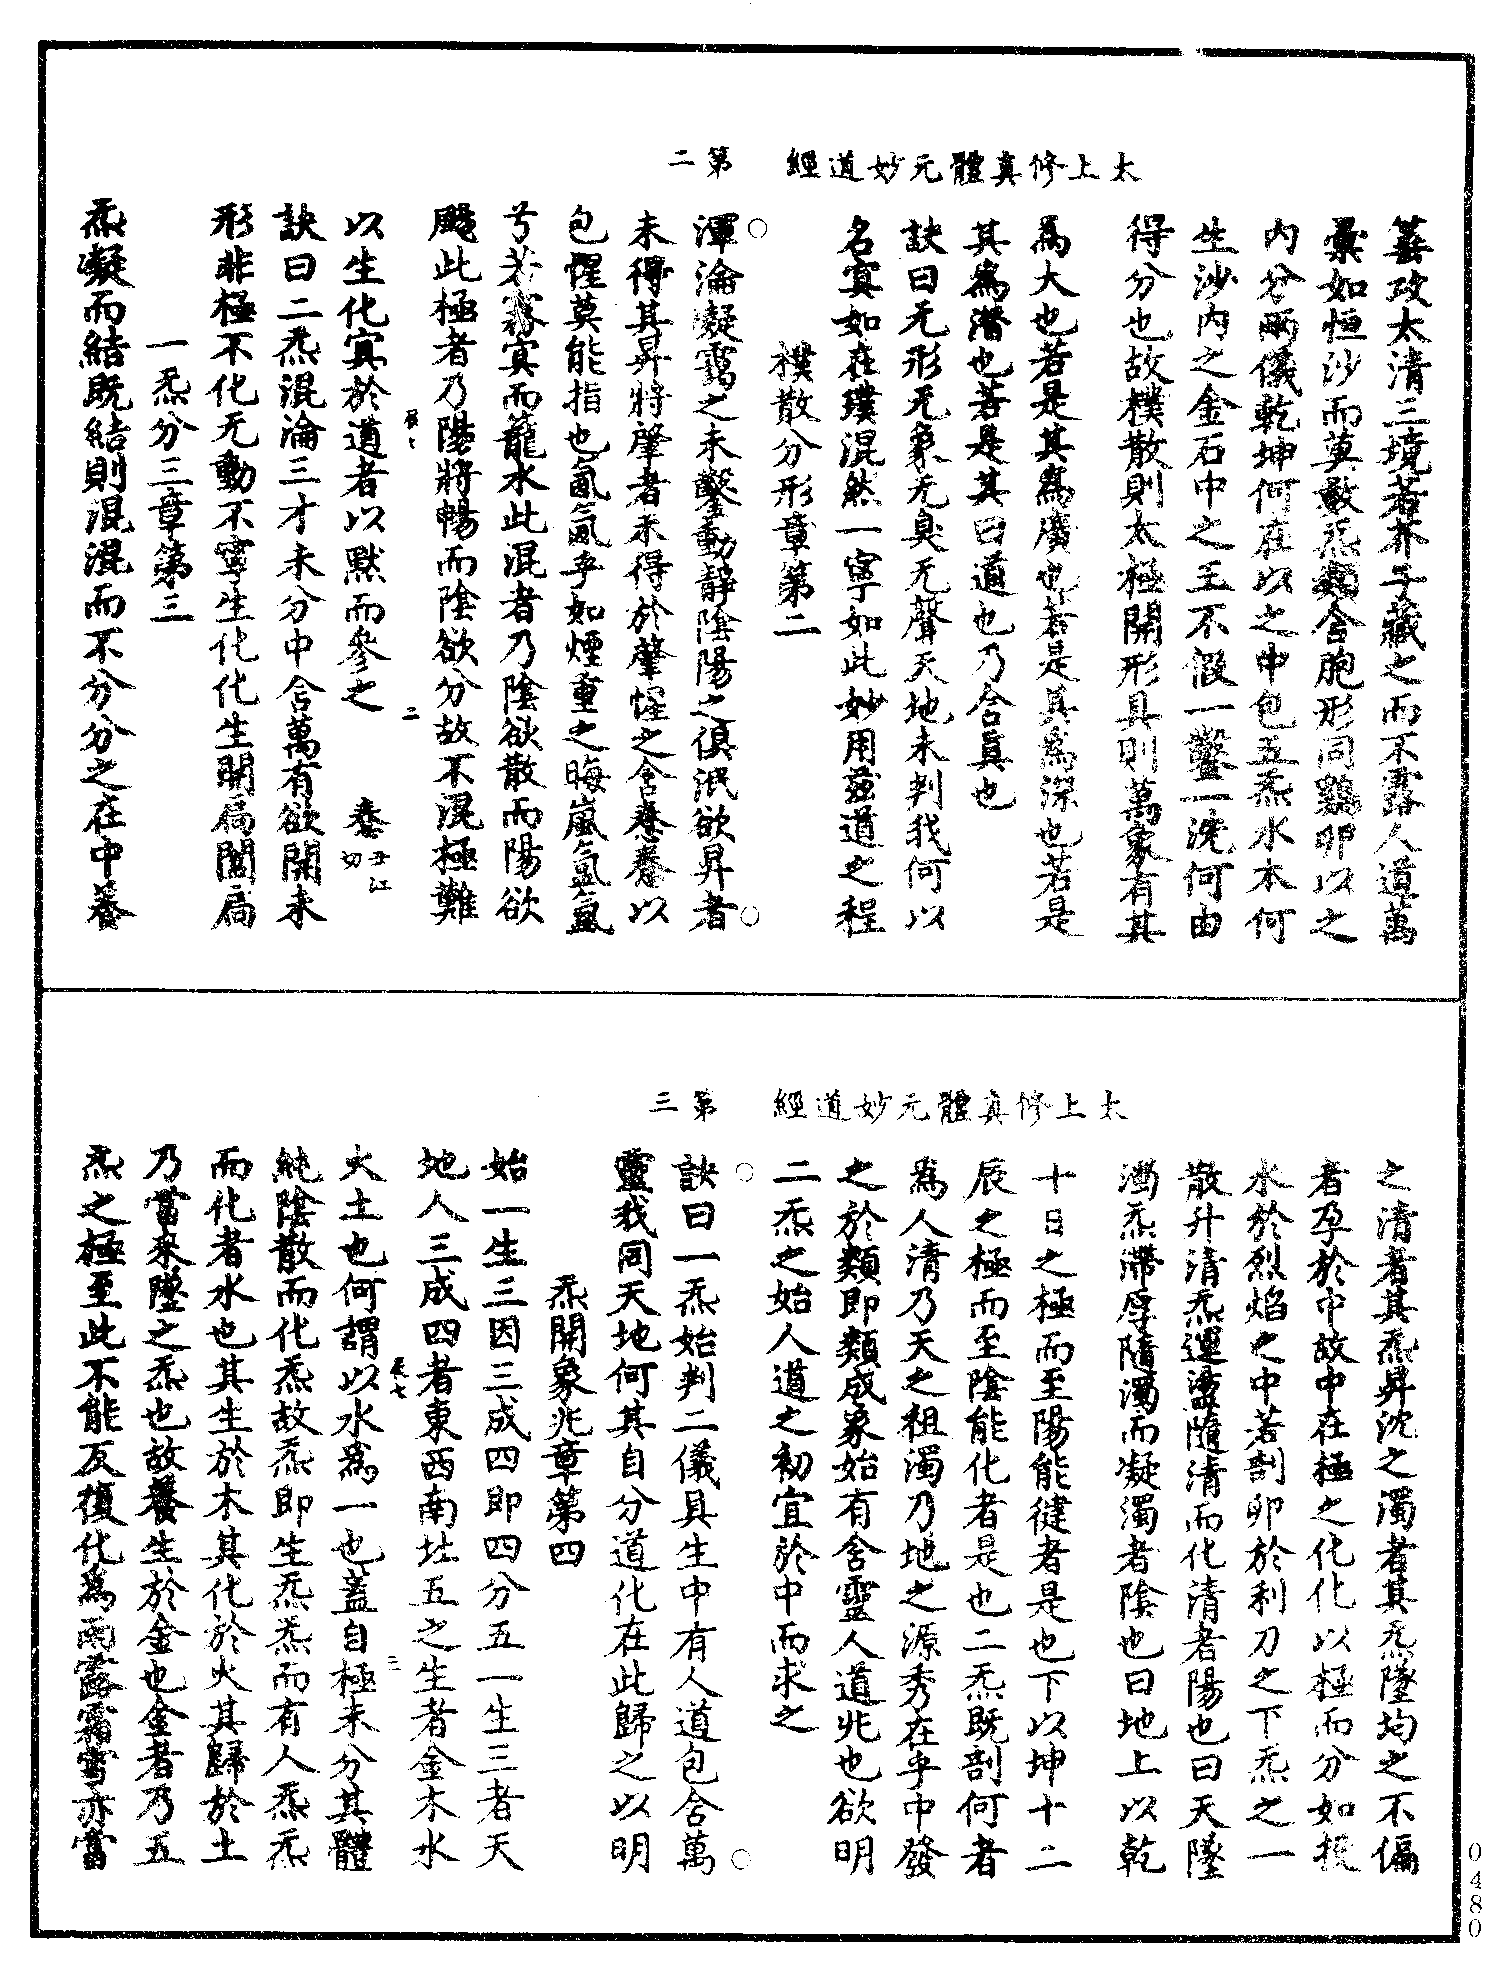 太上修真體元妙道經 第二
蓋攷太清三境若芥子藏之而不露人道萬
彙如恒沙而莫數炁類含胞形同鷄卵以之
內分兩儀乾坤何在以之中包五炁水木何
生沙內之金石中之玉不假一鑿一洗何由
得分也故樸散則太極開形具則萬象有其
為大也若是其為廣也若是其為深也若是
其為潛也若是其曰道也乃含真也
訣曰无形无象无臭无聲天地未判我何以
名寘如在璞混然一寧如此妙用茲道之程
樸散分形章第二
渾淪凝靄之未鑿動靜陰陽之俱泯欲昇者
未得其昇將肇者未得於肇惺之含惷惷以
包惺莫能指也氤氳乎如煙重之晦嵐氳氳
兮若霧寘而籠水此混者乃陰欲散而陽欲
颺此極者乃陽將暢而陰欲分故不混極難
以生化寘於道者以默而參之 惷丑江切
訣曰二炁混淪三才未分中含萬有欲開未
形非極不化无動不寧生化化生開扃闔扃
一炁分三章第三
炁凝而結既結則混混而不分分之在中蓋
太上修真體元妙道經 第三
之清者其炁昇沈之濁者其炁墜均之不偏
者孕於中故中在極之化化以極而分如投
水於烈焰之中若剖卵於利刀之下炁之一
散升清炁運盪隨清而化清者陽也曰天墜
濁炁滯厚隨濁而凝濁者陰也曰地上以乾
十日之極而至陽能健者是也下以坤十二
辰之極而至陰能化者是也二炁既剖何者
為人清乃天之祖濁乃地之源秀在乎中發
之於類即類成象始有含靈人道兆也欲明
二炁之始人道之初宜於中而求之
訣曰一炁始判二儀具生中有人道包含萬
靈我同天地何其自分道化在此歸之以明
炁開象兆章第四
始一生三因三成四四即四分五一生三者天
地人三成四者東西南北五之生者金木水
火土也何謂以水為一也蓋自極未分其體
純陰散而化炁故炁即生炁炁而有人炁炁
而化者水也其生於木其化於火其歸於土
乃當來墜之炁也故養生於金也金者乃五
炁之極至此不能反復化為雨露霜雪亦當
0480